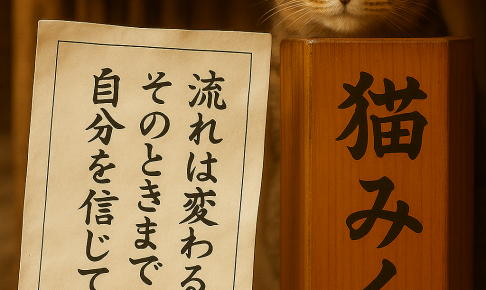 流れは変わる
そのときまで
自分を信じて
猫み